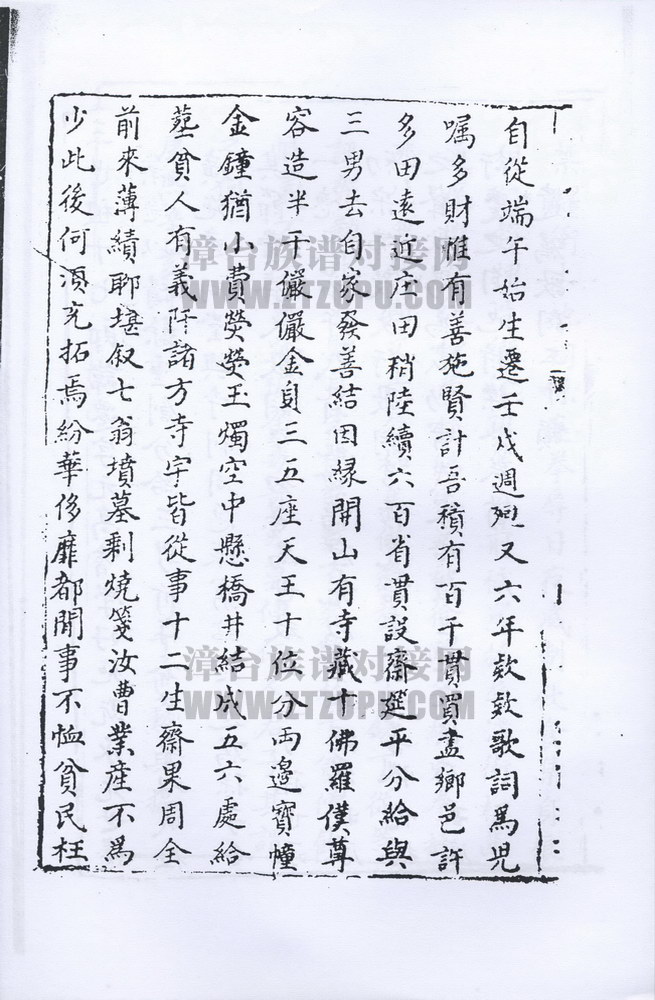 自從端午始生遷壬戌週迴又六年欸欸歌詞為児
嘱多財惟有善施賢計吾積有百千貫買盡鄉邑許
多田遠近庄田稍陸續六百省貫設齋筵平分給與
三男去自家發善結因縁開山有寺藏十佛羅漢尊
容造半千儼儼金身三五座天王十位分両邉寳幢
金鐘猶小費熒熒玉燭空中懸橋井結成五六處給
葬貧人有義阡諸方寺宇皆從事十二生齋果周全
前來薄績聊堪叙七翁墳墓剩燒箋汝曹業産不為
少此後何須充拓焉紛華侈靡都閒事不恤貧民枉
漳台族谱对接网
WWW.ZTZUPU.COM
漳台族谱对接网
WWW.ZTZUPU.COM